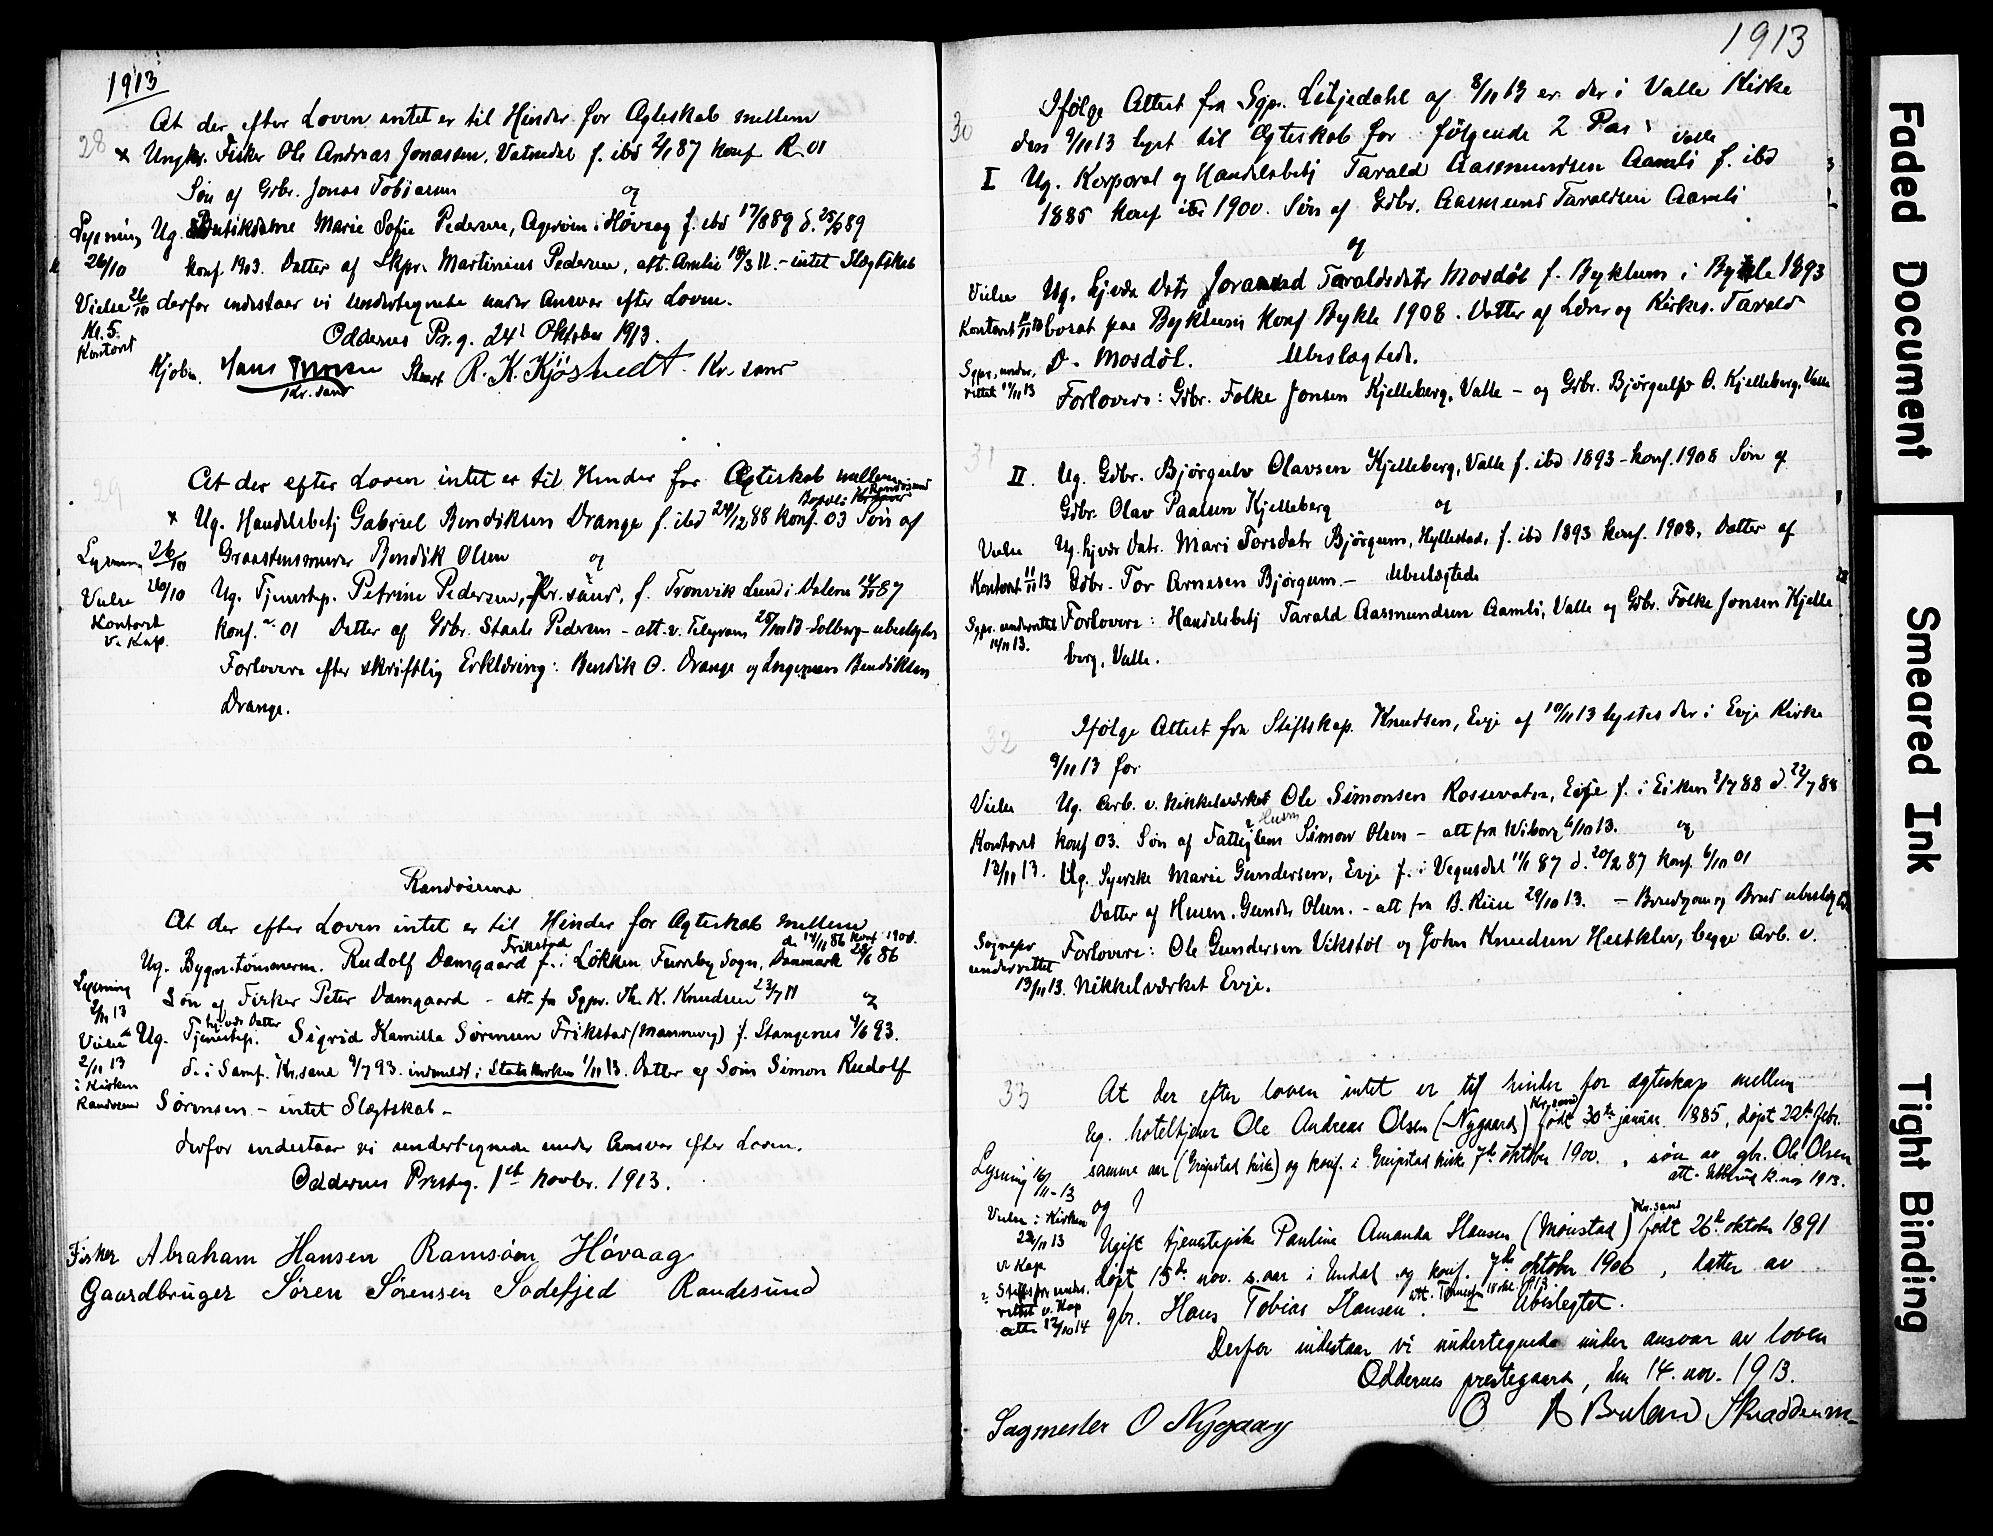 1913
28
At der efter Loven intet er til Hinder for Ægteskab mellem
x Ungkr. Fisker Ole Andreas Jonassen, Vatnedal f. ibd 2/1 87 konf R 01
Søn af Gdbr. Jonas Tobiasen og
Ug. Butikdame Marie Sofie Pedersen, Ageröen i Høvaag f. ibd 17/8 89 d. 25/8 89
konf. 1903. Datter af Skpr. Martinius Pedersen, att. Amlie 18/3 11. - intet Slægtskab
derfor indestaar vi undertegnede under Ansvar efter Loven.
Oddernes Pr.g. 24' Oktober 1913.
Kjøbm. Hans
Kr. sand
R. K. Kjöstvedt Kr. sand
Lysning
26/10
Vielse 26/10
Kl. 5.
Kontoret
29
At der efter Loven intet er til Hinder for Ægteskab mellem
Randøsund
x Ug. Handelsbetj Gabriel Bendiksen Drange f. ibd 24/12 88 konf. 03 Søn af
Graastensmurer Bendik Olsen og
Ug. Tjenestep. Petrine Pedersen, Kr. sand, f. Tronvik Lund i Dalene 14/5 87
konf. 01 Datter af Gdbr. Staale Pedersen - att. v. Telegram 25/10 13 Solberg - ubeslægtet
Forlovere efter skriftlig Erklæring: Bendik O. Drange og Ingeman Bendiksen
Drange.
Lysning 26/10
Vielse 26/10
Kontoret
v. Kap.
Randøsund
At der efter Loven intet er til Hinder for Ægteskab mellem
Frikstad d. 14/11 86 konf 1900.
Ug. Bygn.tømmerm. Rudolf Damgaard f. i Løkken Furreby Sogn, Danmark 28/6 86
Søn af Fisker Peter Damgaard - att. fra Sgpr. Th. K. Knudsen 23/7 11 og
hj.vdr Datter
Ug. Tjenestep. Sigrid Kamilla Sørensen Frikstad (Mannevig) f. Stangenes 4/6 93.
d. i Samf. Kr.sand 9/7 93. indmeldt i Statskirken 1/11 13. Datter af Søm. Simon Rudolf
Sørensen - intet Slægtskab -
derfor indestaar vi undertegnede under Ansvar efter Loven.
Oddernes Presteg. 1st Novbr. 1913.
Lysning
2/11 13
Vielse
2/11 13
i Kirken
Randøsund
Fisker Abraham Hansen Ramsöen Hövaag
Gaardbruger Sören Sörensen Sodefjed Randesund
1913
30
Ifölge Attest fra Sgpr. Litjedahl af 8/11 13 er der i Valle Kirke
den 9/11 13 lyst til Ægteskab for følgende 2 Par:
Valle
I Ug. Korporal og Handelsbetj Tarald Aasmundsen Aamli f. ibd
1885 konf ibd 1900. Søn af Gdbr. Aasmund Taraldsen Aamli
og
Ug. hjvdr Datr Joraand Taraldsdatr Mosdöl f. Byklum i Bykle 1893
bosat paa Byklum konf Bykle 1908. Datter af Lærer og Kirkes. Tarald
D. Mosdöl. Ubeslægtede.
Forlovere: Gdbr. Folke Jonsen Kjelleberg, Valle - og Gdbr. Bjørgulv O. Kjelleberg, Valle
Vielse
Kontoret 11/11 13
Sgpr. under
rettet 11/11 13
31
II. Ug. Gdbr. Bjørgulv Olavsen Kjelleberg, Valle f. ibd 1893 - konf. 1908 Søn af
Gdbr. Olav Paalsen Kjelleberg og
Ug. hjvdr Datr. Mari Torsdatr Bjørgum, Hyllestad, f. ibd 1893 konf. 1908. Datter af
Gdbr. Tor Arnesen Bjørgum. - Ubeslægtede
Forlovere: Handelsbetj Tarald Aasmundsen Aamli, Valle og Gdbr. Folke Jonsen Kjelle
berg, Valle.
Vielse
Kontoret 11/11 13
Sgpr. underrettet
14/11 13.
32
Ifölge Attest fra Stiftskap. Knudsen, Evje af 10/11 13 lystes der i Evje Kirke
9/11 13 for
Ug. Arb. v. Nikkelværket Ole Simonsen Rossevatn, Evje f. i Eiken 3/7 88 d. 22/7 88
Husm
konf 03. Søn af Fattiglem Simon Olsen - att fra Wiborg 6/10 13. og
Ug. Syerske Marie Gundersen, Evje f. i Vegusdal 11/1 87 d. 20/2 87 konf. 6/10 01
Datter af Husm. Gunder Olsen. - att fra B. Riise 29/10 13. - Brudgom og Brud ubeslægtet
Forlovere: Ole Gundersen Vikstöl og John Knudsen Hestklev, begge Arb. v.
Nikkelværket Evje.
Vielse
Kontoret
12/11 13.
Sognepr
underrettet
13/11 13.
33
At der efter loven intet er til hinder for ægteskap mellem
Kr. sand
Ug. hoteltjener Ole Andreas Olsen (Nygaard) født 30te januar 1885, døpt 22de febr.
samme aar (Greipstad kirke) og konf. i Greipstad kirke 7de oktober 1900. , søn av gbr. Ole Olsen
att. 12. nov 1913.
og
Kr. sand
Ugift tjenestepike Pauline Amanda Hansen (Mönstad) født 26de oktober 1891
døpt 15de nov. s. aar i Undal og konf. 7de oktober 1906 , datter av
gbr. Hans Tobias Hansen. Ubeslegtet.
Derfor indestaar vi undertegnede under ansvar av loven
Oddernes prestegaard, den 14. nov. 1913.
Lysning 16/11-13
Vielse i Kirken
22/11 13
v. Kap.
Sagmester O Nygaard
Skræddrm
Faded Document
Smeared Ink
Tight Binding